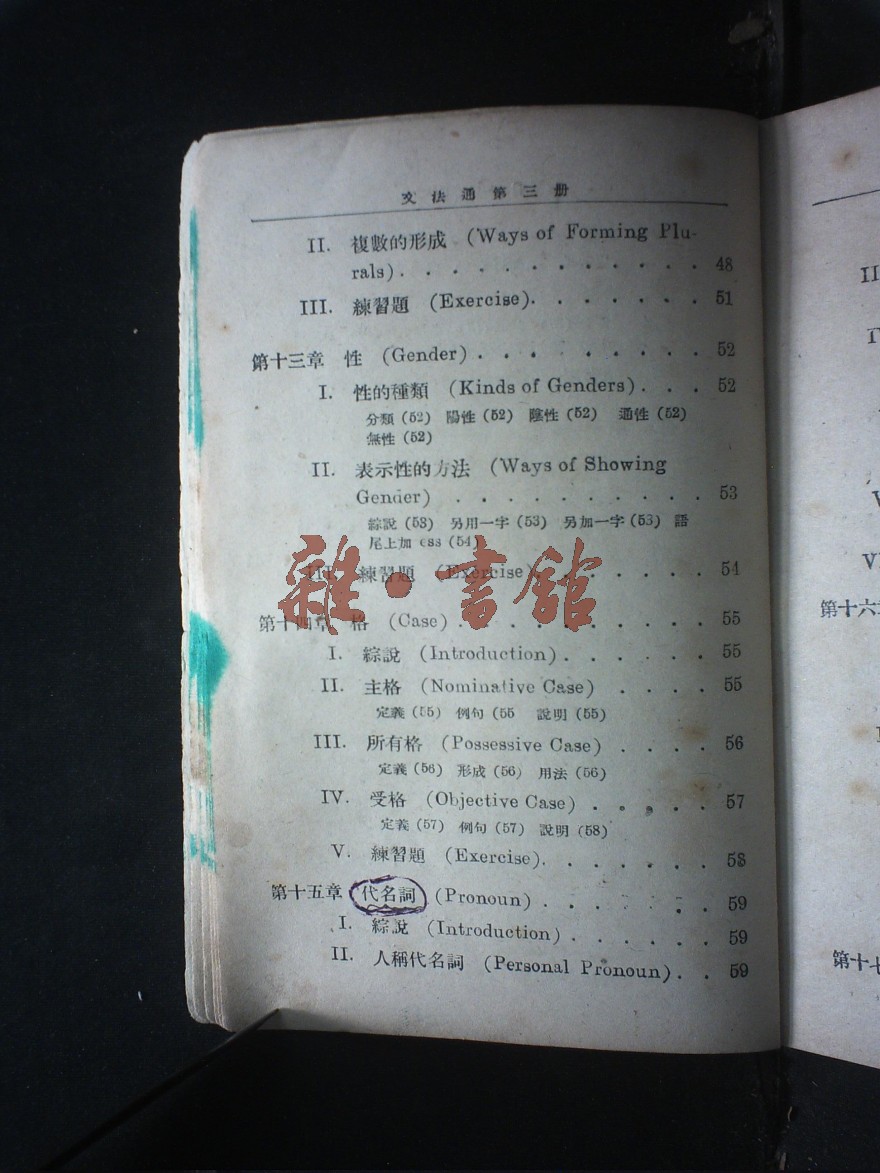 文法通第三册
II. 複數的形成 (Ways of Forming Plu-
rals) . . . . . . . . . . . . 48
III. 練習題 (Exercise). . . . . . . 51
第十三章 性 (Gender) . . . . . . . . . 52
I. 性的種類 (Kinds of Genders) . . . 52
分類 (52) 陽性 (52) 陰性 (52) 通性 (52)
無性 (52)
II. 表示性的方法 (Ways of Showing
Gender) . . . . . . . . . . 53
綜說 (53) 另用一字 (53) 另加一字 (53) 語
尾上加 ess (54)
III. 練習題 (Exercise). . . . . . . 54
雜·書館
第十四章 格 (Case) . . . . . . . . . . 55
I. 綜說 (Introduction) . . . . . . 55
II. 主格 (Nominative Case) . . . . 55
定義 (55) 例句 (55 說明 (55)
III. 所有格 (Possessive Case) . . . . 56
定義 (56) 形成 (56) 用法 (56)
IV. 受格 (Objective Case) . . . . . 57
定義 (57) 例句 (57) 說明 (58)
V. 練習題 (Exercise). . . . . . . 58
第十五章 代名詞 (Pronoun) . . . . . . . 59
I. 綜說 (Introduction) . . . . . . 59
II. 人稱代名詞 (Personal Pronoun) . . 59
II
V
VI
第十六章
第十七